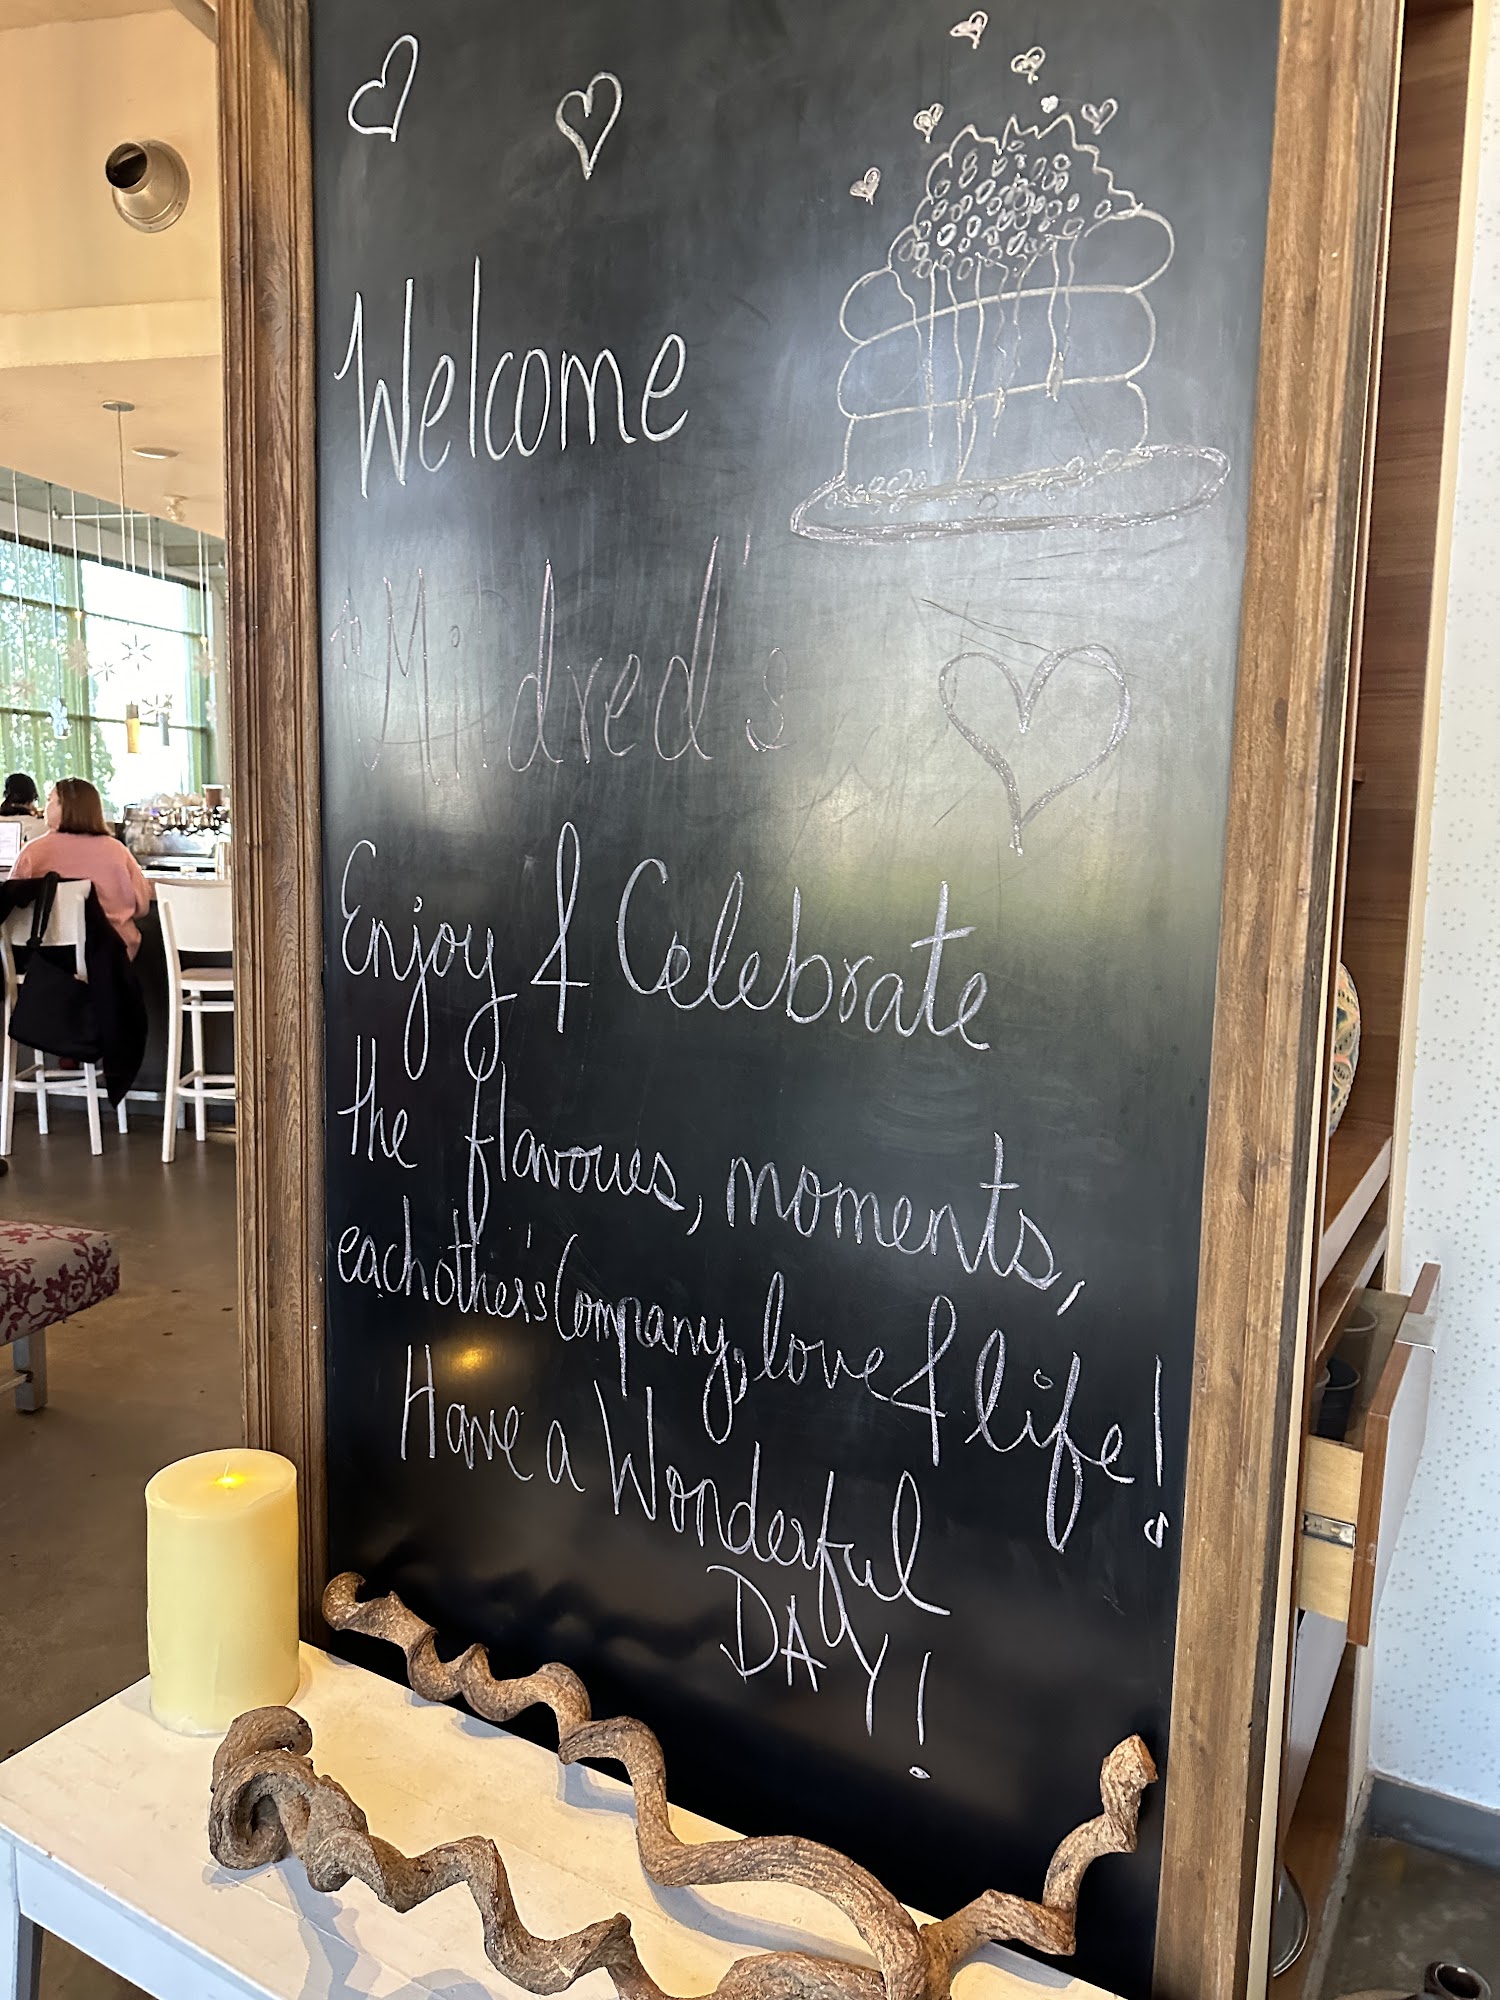 Welcome
to Mildred's
Enjoy & Celebrate
the flavours, moments,
eachother's Company, love & life!
Have a Wonderful
DAY!